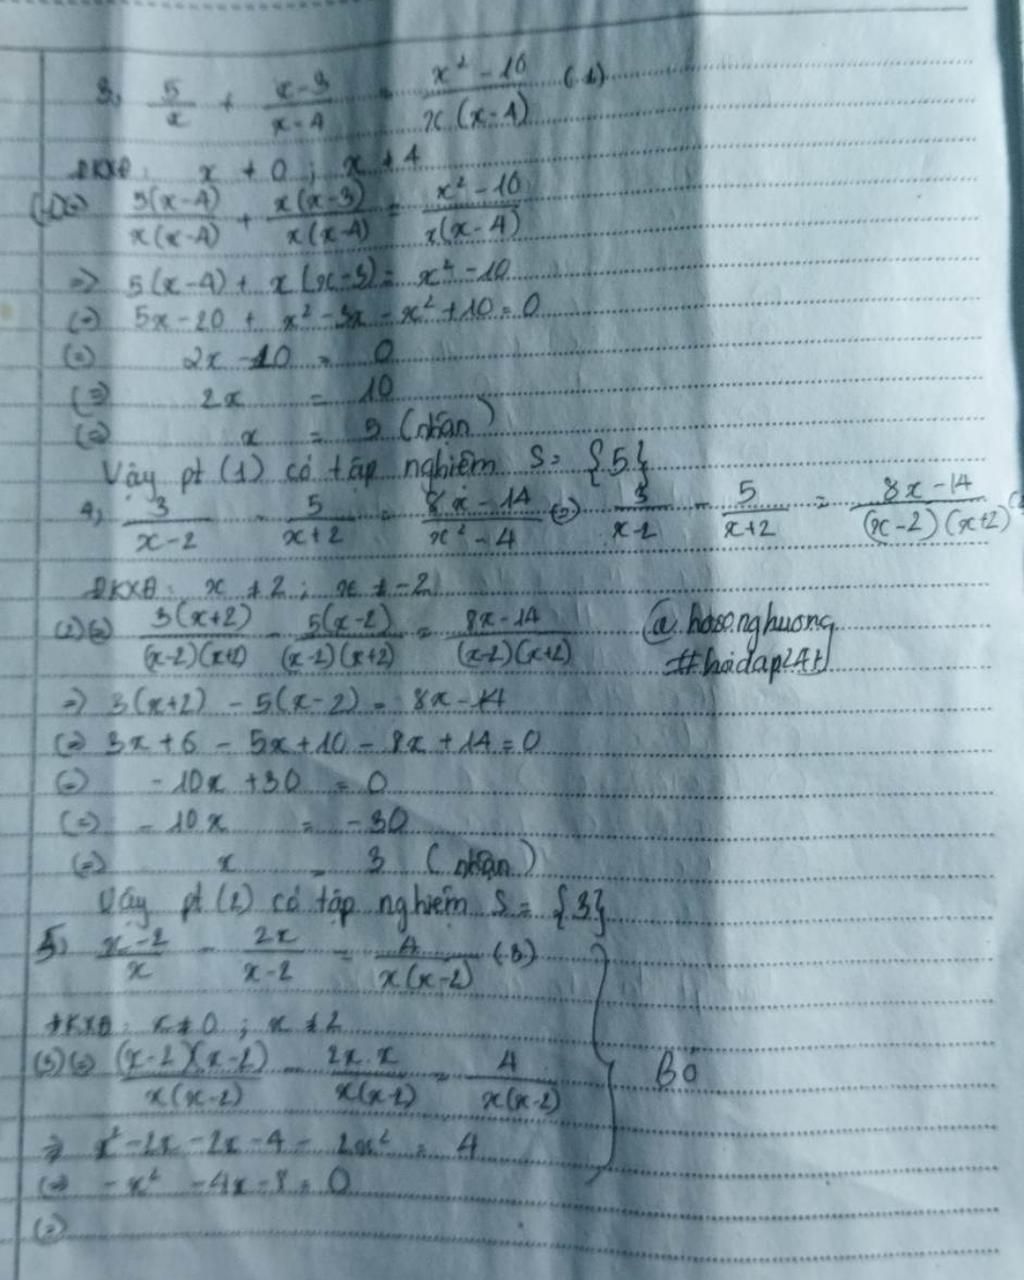 3, 5/x + (x-3)/(x-4) = (x² - 10)/(x(x-4)) (1)
ĐKXĐ: x ≠ 0 ; x ≠ 4
(1)(=) 5(x-4)/(x(x-4)) + x(x-3)/(x(x-4)) = (x² - 10)/(x(x-4))
=> 5(x-4) + x(x-3) = x² - 10
(=) 5x - 20 + x² - 3x - x² + 10 = 0
(=) 2x - 10 = 0
(=) 2x = 10
(=) x = 5 (nhận)
Vậy pt (1) có tập nghiệm S = {5}
4, 3/(x-2) - 5/(x+2) = (8x - 14)/(x² - 4) (=) 3/(x-2) - 5/(x+2) = (8x - 14)/((x-2)(x+2)) (2
ĐKXĐ: x ≠ 2 ; x ≠ -2
(2)(=) 3(x+2)/((x-2)(x+2)) - 5(x-2)/((x-2)(x+2)) = (8x - 14)/((x-2)(x+2))
@hosonghuong
#hoidap247
=> 3(x+2) - 5(x-2) = 8x - 14
(=) 3x + 6 - 5x + 10 - 8x + 14 = 0
(=) -10x + 30 = 0
(=) -10x = -30
(=) x = 3 (nhận)
Vậy pt (2) có tập nghiệm S = {3}
5, (x-2)/x - 2x/(x-2) = 4/(x(x-2)) (3)
ĐKXĐ: x ≠ 0 ; x ≠ 2
(3)(=) (x-2)(x-2)/(x(x-2)) - 2x.x/(x(x-2)) = 4/(x(x-2))
Bỏ
=> x² - 2x - 2x - 4 - 2x² = 4
(=) -x² - 4x - 8 = 0
(=)